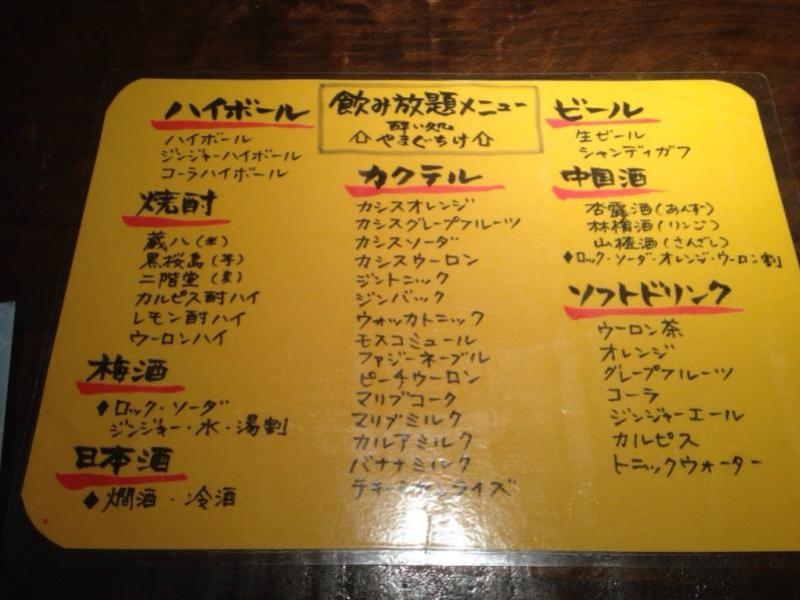 飲み放題メニュー
酔い処
⇧やまぐちけ⇧
ハイボール
ハイボール
ジンジャーハイボール
コーラハイボール
焼酎
蔵八(米)
黒桜島(芋)
二階堂(麦)
カルピス酎ハイ
レモン酎ハイ
ウーロンハイ
梅酒
◆ロック・ソーダ
ジンジャー・水・湯割
日本酒
◆燗酒・冷酒
カクテル
カシスオレンジ
カシスグレープフルーツ
カシスソーダ
カシスウーロン
ジントニック
ジンバック
ウォッカトニック
モスコミュール
ファジーネーブル
ピーチウーロン
マリブコーク
マリブミルク
カルアミルク
バナナミルク
テキーラサンライズ
ビール
生ビール
シャンディガフ
中国酒
杏露酒(あんず)
林檎酒(リンゴ)
山楂酒(さんざし)
◆ロック・ソーダ・オレンジ・ウーロン割
ソフトドリンク
ウーロン茶
オレンジ
グレープフルーツ
コーラ
ジンジャーエール
カルピス
トニックウォーター